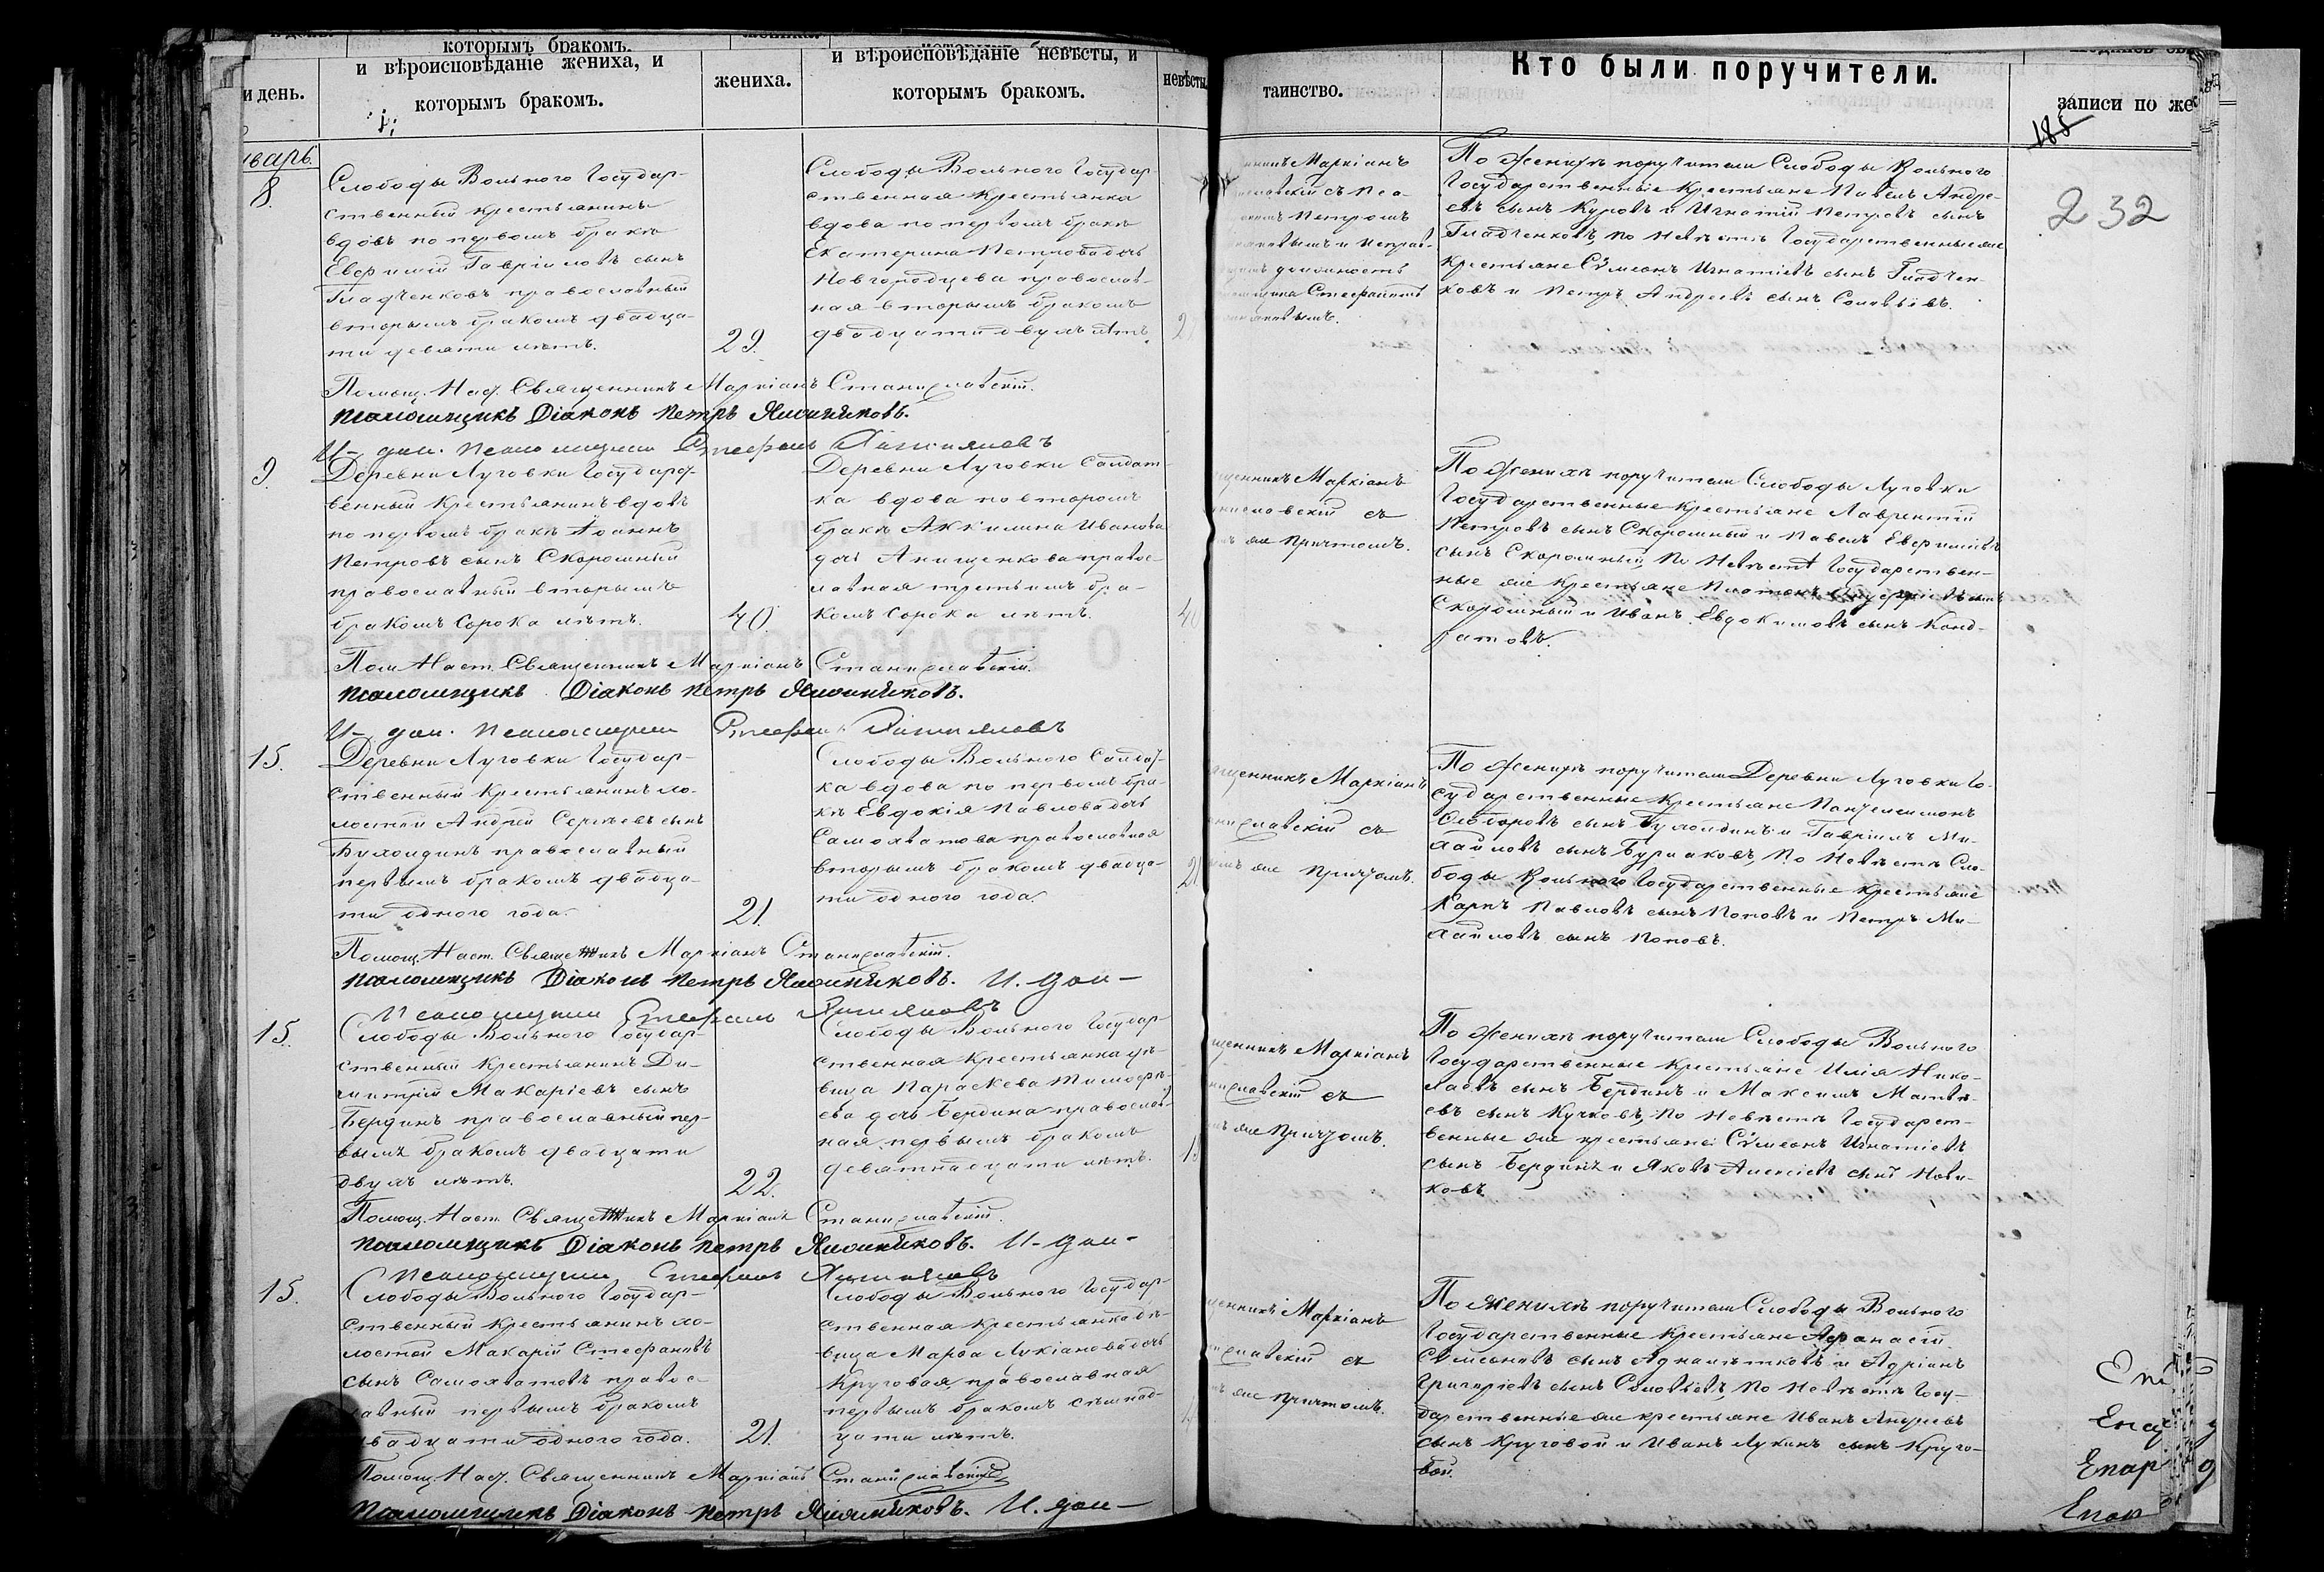 которымъ бракомъ.
и вѣроисповѣданіе жениха, и
и день.
которымъ бракомъ.
жениха.
и вѣроисповѣданіе невѣсты, и
которымъ бракомъ.
невѣсты
таинство.
Кто были поручители.
записи по же
185
232
8.
Слободы Вольного Государ-
ственный крестьянинъ
вдовъ по первомъ бракѣ
Евфимій Гавріиловъ сынъ
Гладченковъ православный
вторымъ бракомъ двадца-
ти девяти лѣтъ.
29.
Слободы Вольного Государ-
ственная крестьянка
вдова по первомъ бракѣ
Екатерина Петрова дочь
Новгородцева православ-
ная вторымъ бракомъ
двадцати двухъ лѣтъ.
Маркіанъ
Петромъ
должность
Стефаномъ
По женихѣ поручители Слободы Вольного
Государственные крестьяне Павелъ Андре-
евъ сынъ Куровъ и Игнатій Петровъ сынъ
Гладченковъ, по невѣстѣ Государственные же
крестьяне Сѵмеонъ Игнатіевъ сынъ Гладчен-
ковъ и Петръ Андреевъ сынъ Соловьевъ.
Помощ. Наст. Священникъ Маркіанъ Станиславскій.
Псаломщикъ Діаконъ Петръ
И. дол. Псаломщика Стефанъ
9.
Деревни Луговки Государст-
венный крестьянинъ вдовъ
по первомъ бракѣ Іоаннъ
Петровъ сынъ Скоромный
православный вторымъ
бракомъ сорока лѣтъ.
40.
Деревни Луговки Солдат-
ка вдова по второмъ
бракѣ Аккилина Иванова
дочь Анищенкова правос-
лавная третьимъ бра-
комъ сорока лѣтъ.
Маркіанъ
съ
же причтомъ.
По женихѣ поручители Слободы Луговки
Государственные крестьяне Лаврентій
Петровъ сынъ Скоромный и Павелъ Евфиміевъ
сынъ Скоромный, по невѣстѣ Государствен-
ные же крестьяне Платонъ
Скоромный и Иванъ Евдокимовъ сынъ Конд-
ратовъ.
Пом. Наст. Священникъ Маркіанъ Станиславскій.
Псаломщикъ Діаконъ Петръ
И. дол. Псаломщика Стефанъ
15.
Деревни Луговки Государ-
ственный крестьянинъ хо-
лостой Андрей Сергѣевъ сынъ
Бухолдинъ православный
первымъ бракомъ двадца-
ти одного года.
21.
Слободы Вольного Солдат-
ка вдова по первомъ бра-
кѣ Евдокія Павлова дочь
Самохватова православная
вторымъ бракомъ двадца-
ти одного года.
Маркіанъ
съ
же причтомъ.
По женихѣ поручители Деревни Луговки Го-
сударственные крестьяне Пантелимонъ
Ѳедоровъ сынъ Бухолдинъ и Гавріилъ Ми-
хайловъ сынъ Бурлаковъ, по невѣстѣ Сло-
боды Вольного Государственные крестьяне
Карпъ Павловъ сынъ Поповъ и Петръ Ми-
хайловъ сынъ Поповъ.
Помощ. Наст. Священникъ Маркіанъ Станиславскій.
Псаломщикъ Діаконъ Петръ И. дол-
Псаломщика Стефанъ
15.
Слободы Вольного Государ-
ственный крестьянинъ Ди-
митрій Макаріевъ сынъ
Бердинъ православный пер-
вымъ бракомъ двадцати
двухъ лѣтъ.
22.
Слободы Вольного Государ-
ственная крестьянка дѣ-
вица Параскева Тимоѳѣ-
ева дочь Бердина православ-
ная первымъ бракомъ
девятнадцати лѣтъ.
Маркіанъ
съ
же причтомъ.
По женихѣ поручители Слободы Вольного
Государственные крестьяне Илія Нико-
лаевъ сынъ Бердинъ и Максимъ Матвѣ-
евъ сынъ Кучковъ, по невѣстѣ Государст-
венные же крестьяне Сѵмеонъ Игнатіевъ
сынъ Бердинъ и Яковъ Алексіевъ сынъ Нови-
ковъ.
Помощ. Наст. Священникъ Маркіанъ Станиславскій.
Псаломщикъ Діаконъ Петръ И. дол-
Псаломщика Стефанъ
15.
Слободы Вольного Государ-
ственный крестьянинъ хо-
лостой Макарій Стефановъ
сынъ Самохватовъ правос-
лавный первымъ бракомъ
двадцати одного года.
21.
Слободы Вольного Государ-
ственная крестьянка дѣ-
вица Марѳа Лукіанова дочь
Круговая, православная
первымъ бракомъ семнад-
цати лѣтъ.
Маркіанъ
съ
же причтомъ.
По женихѣ поручители Слободы Вольного
Государственные крестьяне Аѳанасій
Сѵмеоновъ сынъ и Адріанъ
Григоріевъ сынъ Соловьевъ, по невѣстѣ Госу-
дарственные же крестьяне Иванъ Андреевъ
сынъ Круговой и Иванъ Лукинъ сынъ Круго-
вой.
Помощ. Наст. Священникъ Маркіанъ Станиславскій
Псаломщикъ Діаконъ Петръ И. дол-